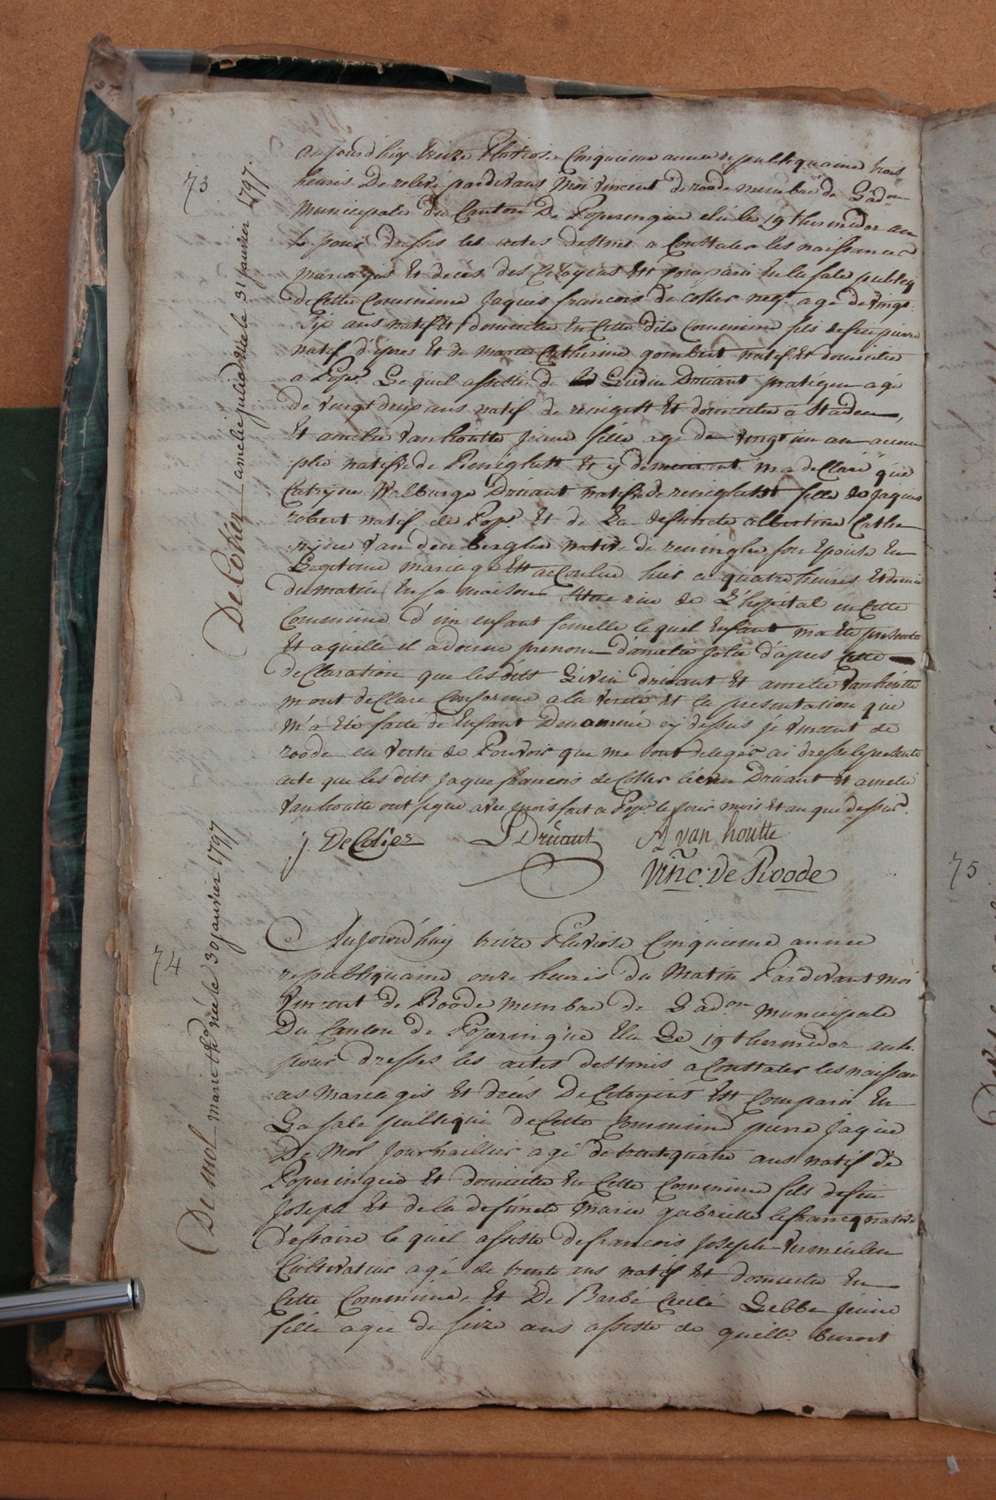 73
De Cotter amelie julie née le 31 janvier 1797.
aujourd'huy treize Pluviose Cinquieme annee republiquaine trois
heures De relevé pardevant Moi Vincent de roode membre de L'adon
Municipale du Canton De Poperingue elu le 19 thermidor an
pour dresser les actes destinés a Constater les naissances
mariages Et deces des Citoyens Est comparu En la sale publiq
de Cette Commune Jaques francois de cotter neg. agé de vingt
Six ans natif Et domicilie En Cette dite Commune fils de feu pierre
natif d'ipres Et de Marie Catherine gombert natif Et domicilie
a Pope Lequel assisté de Lievin Druant pratiquen agé
De vingt deux ans natif de reningelst Et domicilie a Staden,
Et amelie Vanhoutte jeune fille agé de vingt un an accom
plie natif de Reninghelst Et y demeurant m'a declaré que
Catryne Walburge Druant natif de reninghelst fille de Jaques
robert natif de Pope Et de La defunte albertine Cathe
rine Vanden berghe native de reninghe son Epouse En
legitime mariage Est accouchée hier a quatre heures Et demie
du matin En sa maison rue de L'hopital en Cette
Commune d'un enfant femelle lequel Enfant m'a été presenté
Et aquelle il a donné prenom d'amelie Julie d'apres Cette
declaration que les dits Livin druant Et amelie Vanhoutte
m'ont declaré Conforme a la verité Et la presentation qui
m'a été faite de l'enfant Denommé cy dessus je Vincent de
roode en vertu de Pouvoir que me sont delegés ai dressé le presente
acte que les dits Jaque francois de Cotter Livin Druant Et amelie
Vanhoutte ont signé avec moi fait a Pope le jour mois Et an que dessus
j. DeCotter L Druant A van houtte
Vinc: De Roode
74
De mol marie thé née le 30 janvier 1797
Aujourd'huy treize Pluviose Cinquieme annee
republiquaine onze heures du Matin Pardevant Moi
Vincent de Roode membre de L'adon Municipale
Du Canton de Poperingue Elu Le 19 thermidor an 4
pour dresser les actes destinés a Constater les naissan
ces Mariages Et decés De Citoyens Est Comparu En
La sale publique de Cette Commune pierre Jaque
De Mol Journaillier agé de trente quatre ans natif de
Poperingue Et domicilie En Cette Commune fils de feu
Joseph Et de la defunte Marie gabrielle lefrancq native
D'estaire lequel assisté de francois Joseph Vermeulen
Cultivateur agé de trente ans natif Et domicilie En
Cette Commune, Et De Barbe Cecile Lebbe jeune
fille agée de seize ans assisté de quelle benoit
75